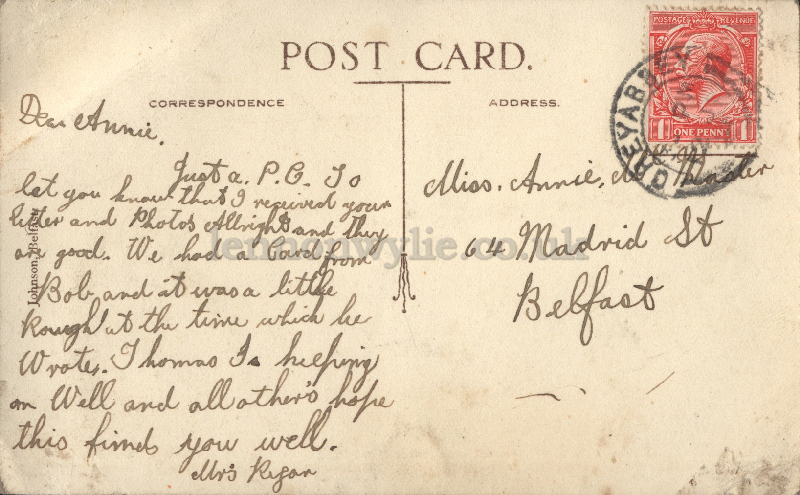 POST CARD.
CORRESPONDENCE
ADDRESS.
POSTAGE REVENUE
1 ONE PENNY 1
GREYABBEY
Dear Annie,
Just a. P.C. To
let you know that I received your
letter and Photos Allright and they
are good. We had a Card from
Bob and it was a little
Rough at the time which he
Wrote. Thomas Is keeping
on Well and all other's hope
this finds you well.
Mrs Regan
Miss. Annie,
64 Madrid St
Belfast
Johnson, Belfast
lennonwylie.co.uk